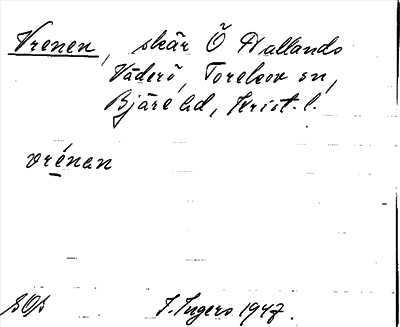 Vrenen, skär Ö Hallands
Väderö, Torekov sn,
Bjäre hd, Krist. l.
vrénan
SOs J. Ingers 1947.